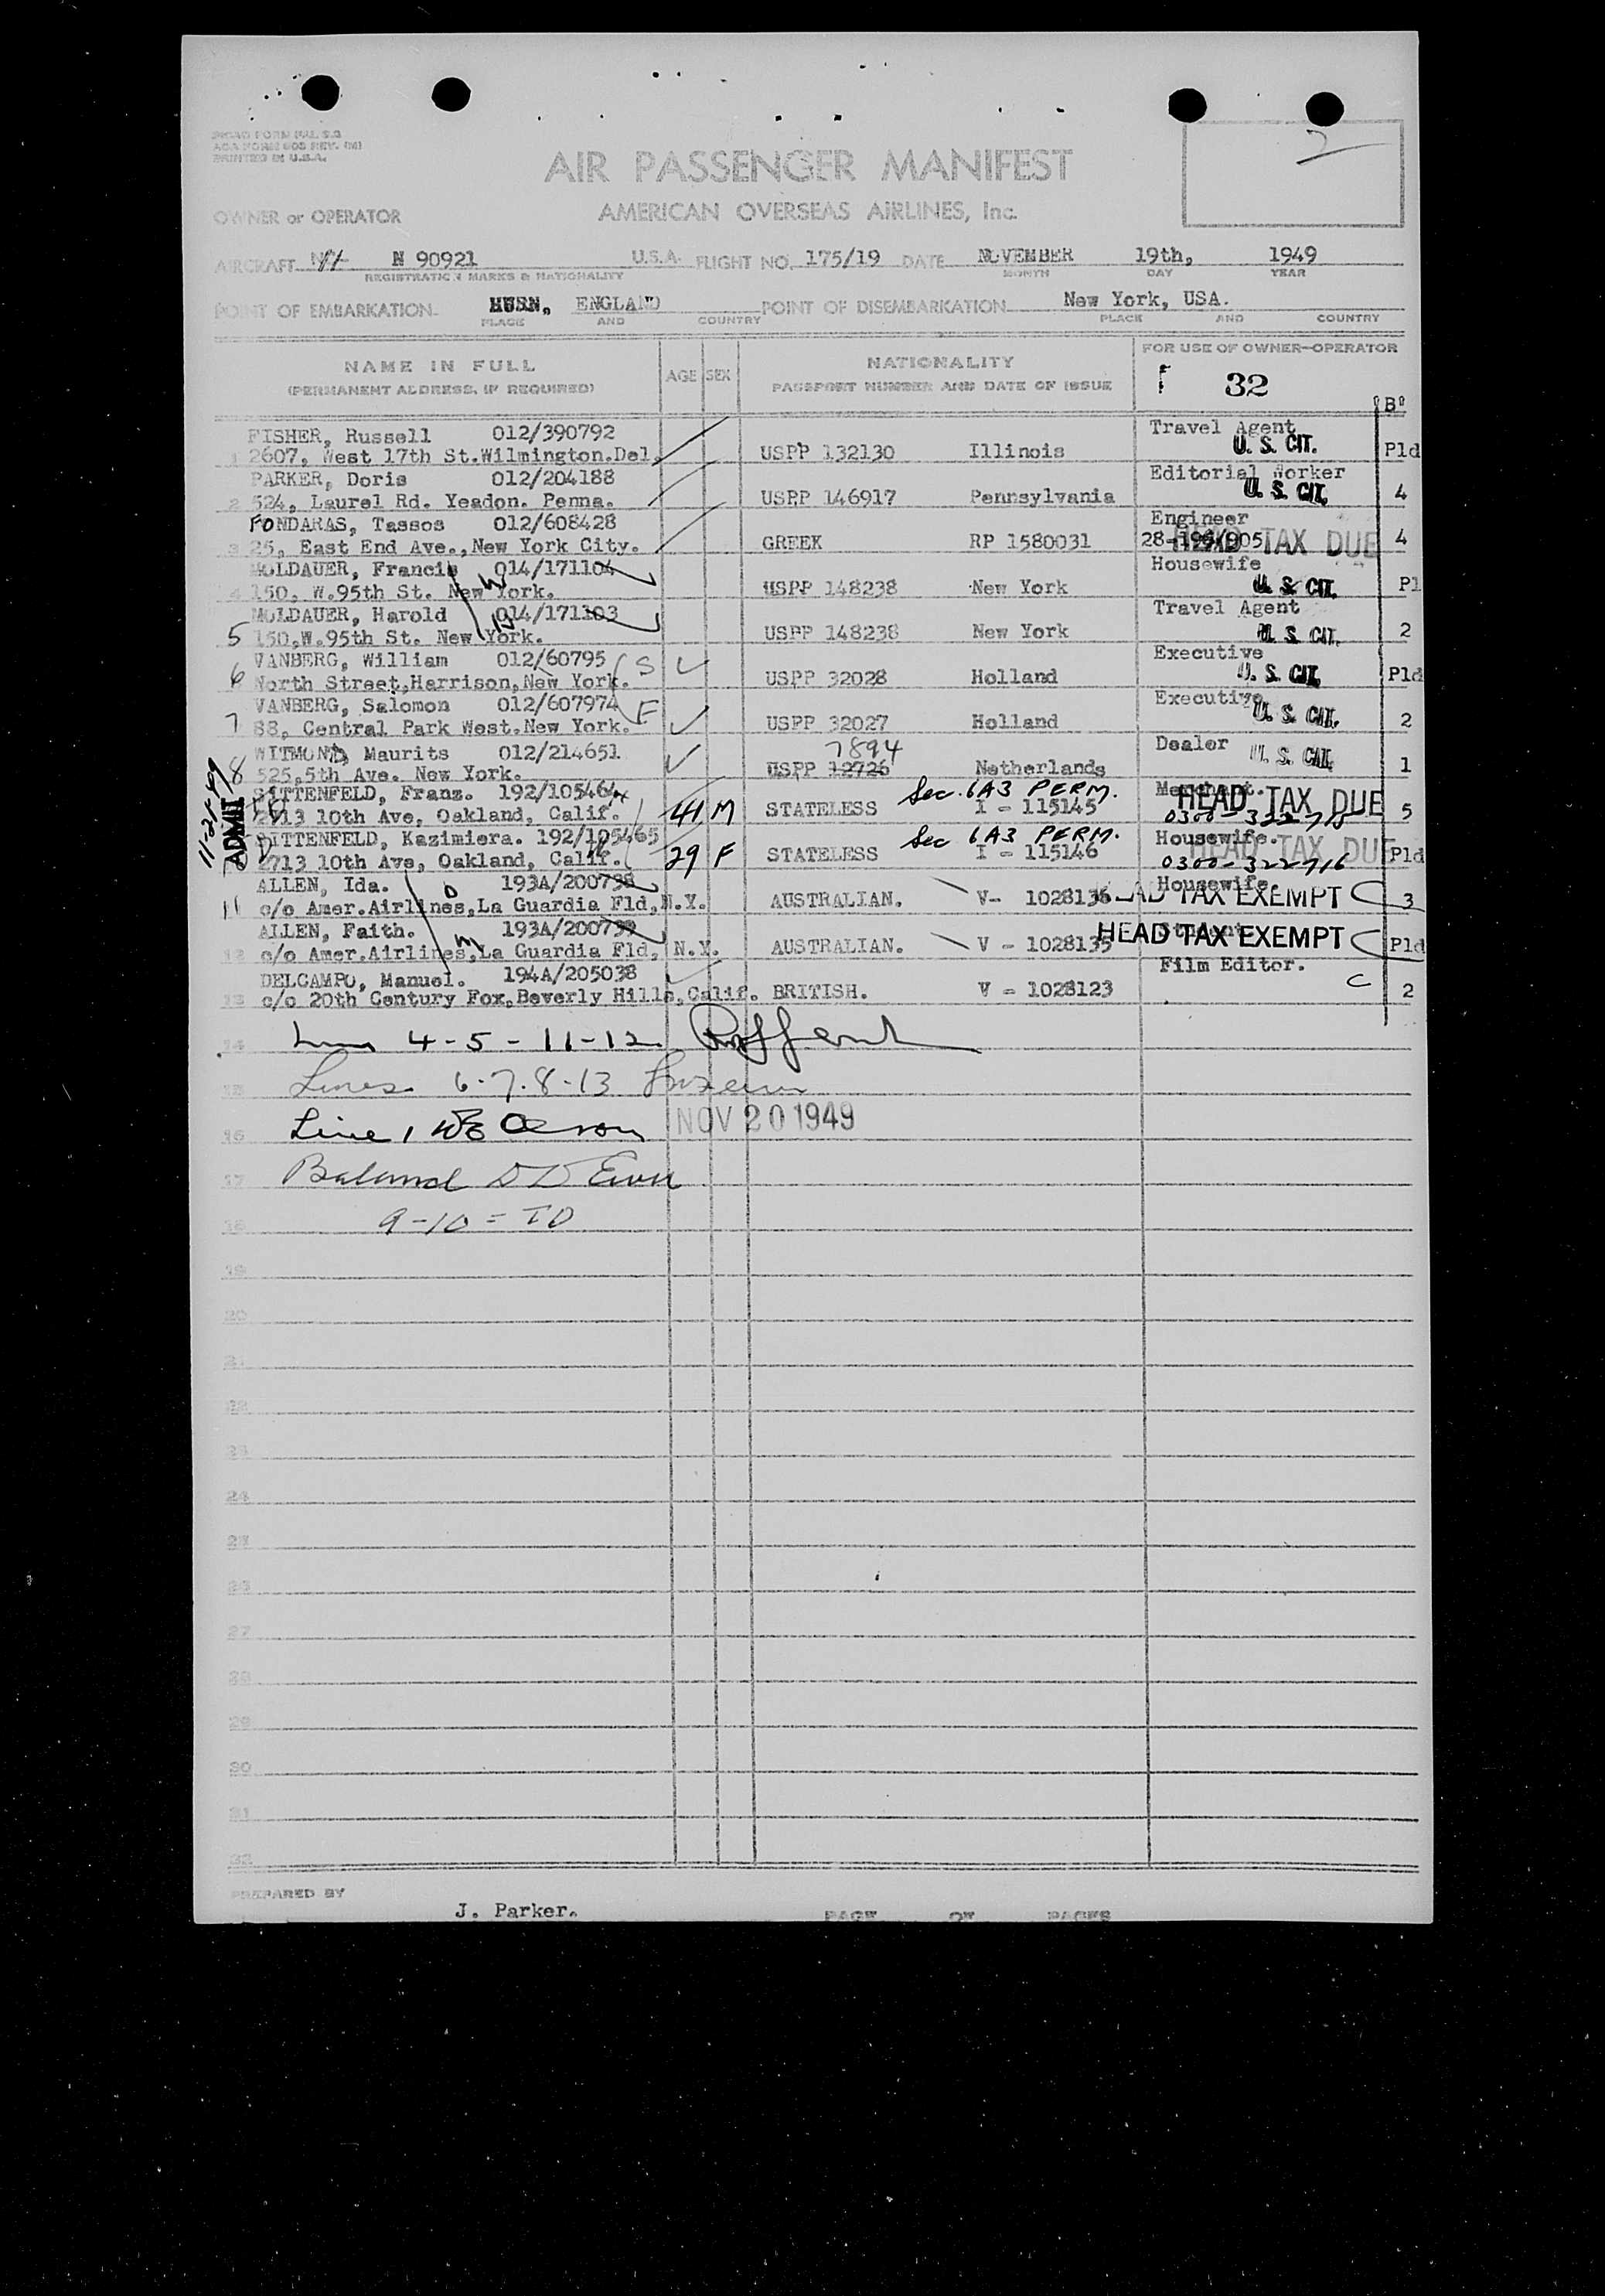 ACA FORM
PRINTED IN U.S.A.
2
AIR PASSENGER MANIFEST
OWNER or OPERATOR AMERICAN OVERSEAS AIRLINES, Inc.
AIRCRAFT N 90921 U.S.A. FLIGHT NO. 175/19 DATE NOVEMBER 19th, 1949
REGISTRATION MARKS & NATIONALITY MONTH DAY YEAR
POINT OF EMBARKATION HURN, ENGLAND POINT OF DISEMBARKATION New York, USA.
PLACE AND COUNTRY PLACE AND COUNTRY
NAME IN FULL AGE SEX NATIONALITY FOR USE OF OWNER-OPERATOR
(PERMANENT ADDRESS, IF REQUIRED) PASSPORT NUMBER AND DATE OF ISSUE 32
B
FISHER, Russell 012/390792 Travel Agent
1 2607, West 17th St.Wilmington.Del. USPP 132130 Illinois U. S. CIT. Pld
PARKER, Doris 012/204188 Editorial Worker
2 524, Laurel Rd. Yeadon. Penna. USPP 146917 Pennsylvania U. S. CIT. 4
FONDARAS, Tassos 012/608428 Engineer
3 25, East End Ave.,New York City. GREEK RP 1580031 HEAD TAX DUE 4
MOLDAUER, Francis 014/171104 Housewife
4 150, W.95th St. New York. USPP 148238 New York U. S. CIT. Pl
MOLDAUER, Harold 014/171103 Travel Agent
5 150,W.95th St. New York. USPP 148238 New York U. S. CIT. 2
VANBERG, William 012/60795 S Executive
6 North Street,Harrison,New York. USPP 32028 Holland U. S. CIT. Pld
VANBERG, Salomon 012/607974 F Executive
7 88, Central Park West.New York. USPP 32027 Holland U. S. CIT. 2
WITMOND, Maurits 012/214651 7894 Dealer
8 525,5th Ave. New York. USPP 12726 Netherlands U. S. CIT. 1
11-21-49 ADMIT
SITTENFELD, Franz. 192/105464 Sec. 6A3 PERM. Merchant.
2713 10th Ave, Oakland, Calif. 41 M STATELESS I - 115145 HEAD TAX DUE 5
SITTENFELD, Kazimiera. 192/105465 Sec 6A3 PERM. Housewife.
2713 10th Ave, Oakland, Calif. 29 F STATELESS I - 115146 HEAD TAX DUE 0300-322716 Pld
ALLEN, Ida. 193A/200738 Housewife.
11 c/o Amer.Airlines,La Guardia Fld,N.Y. AUSTRALIAN. V- 1028136 HEAD TAX EXEMPT C 3
ALLEN, Faith. 193A/200739
12 c/o Amer.Airlines,La Guardia Fld, N.Y. AUSTRALIAN. V - 1028135 HEAD TAX EXEMPT C Pld
DELCAMPO, Manuel. 194A/205038 Film Editor.
13 c/o 20th Century Fox,Beverly Hills,Calif. BRITISH. V - 1028123 C 2
14 4-5-11-12
15 Lines 6-7-8-13
16 Line 1 NOV 20 1949
17
18 9-10 = ID
19
20
21
22
23
24
25
26
27
28
29
30
31
32
PREPARED BY
J. Parker. PAGE OF PAGES